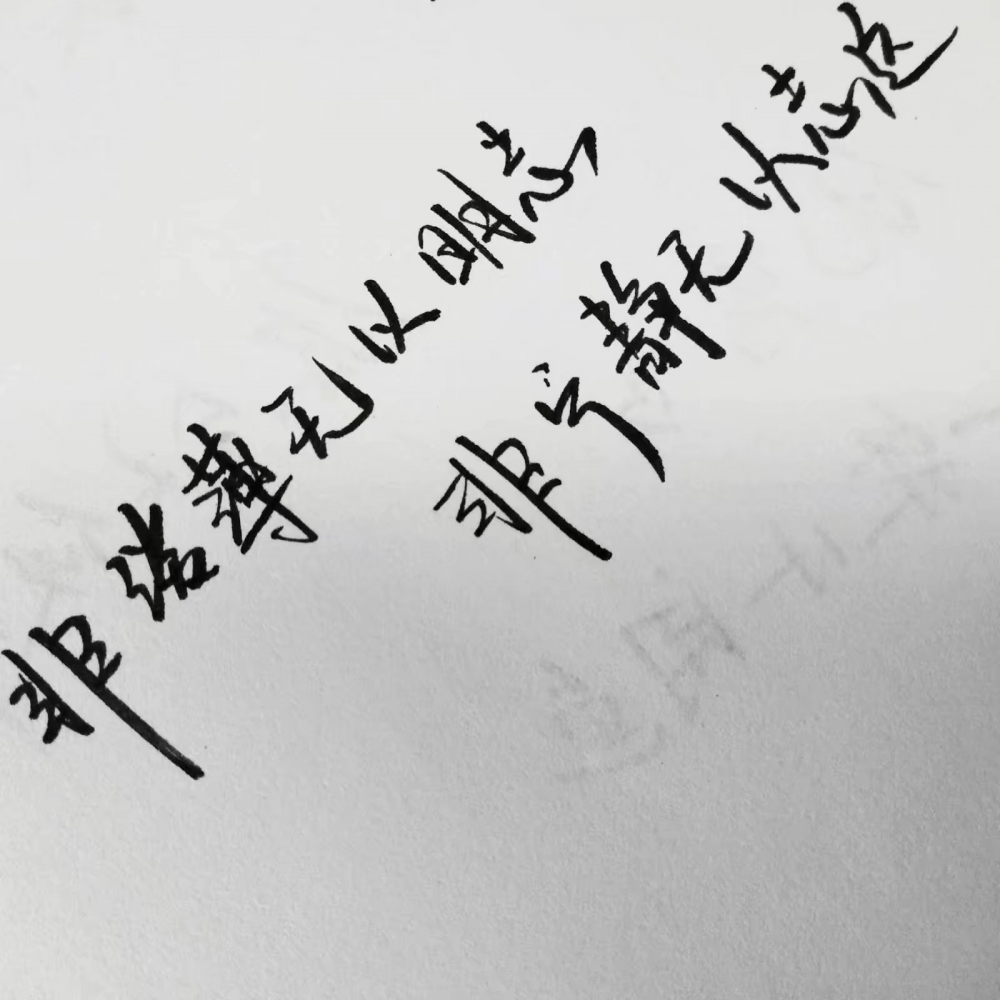 非澹薄无以明志
非宁静无以志远